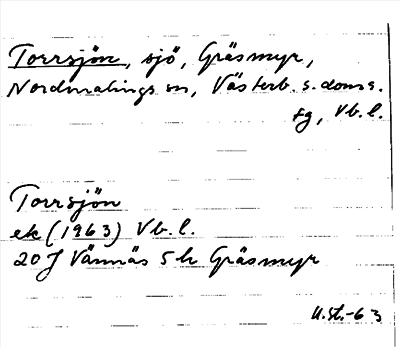 Torrsjön, sjö, Gräsmyr,
Nordmalings sn, Västerb. s. doms.
fg, Vb. l.
Torrsjön
ek (1963) Vb. l.
20J Vännäs 5 h Gräsmyr
U.St.-63